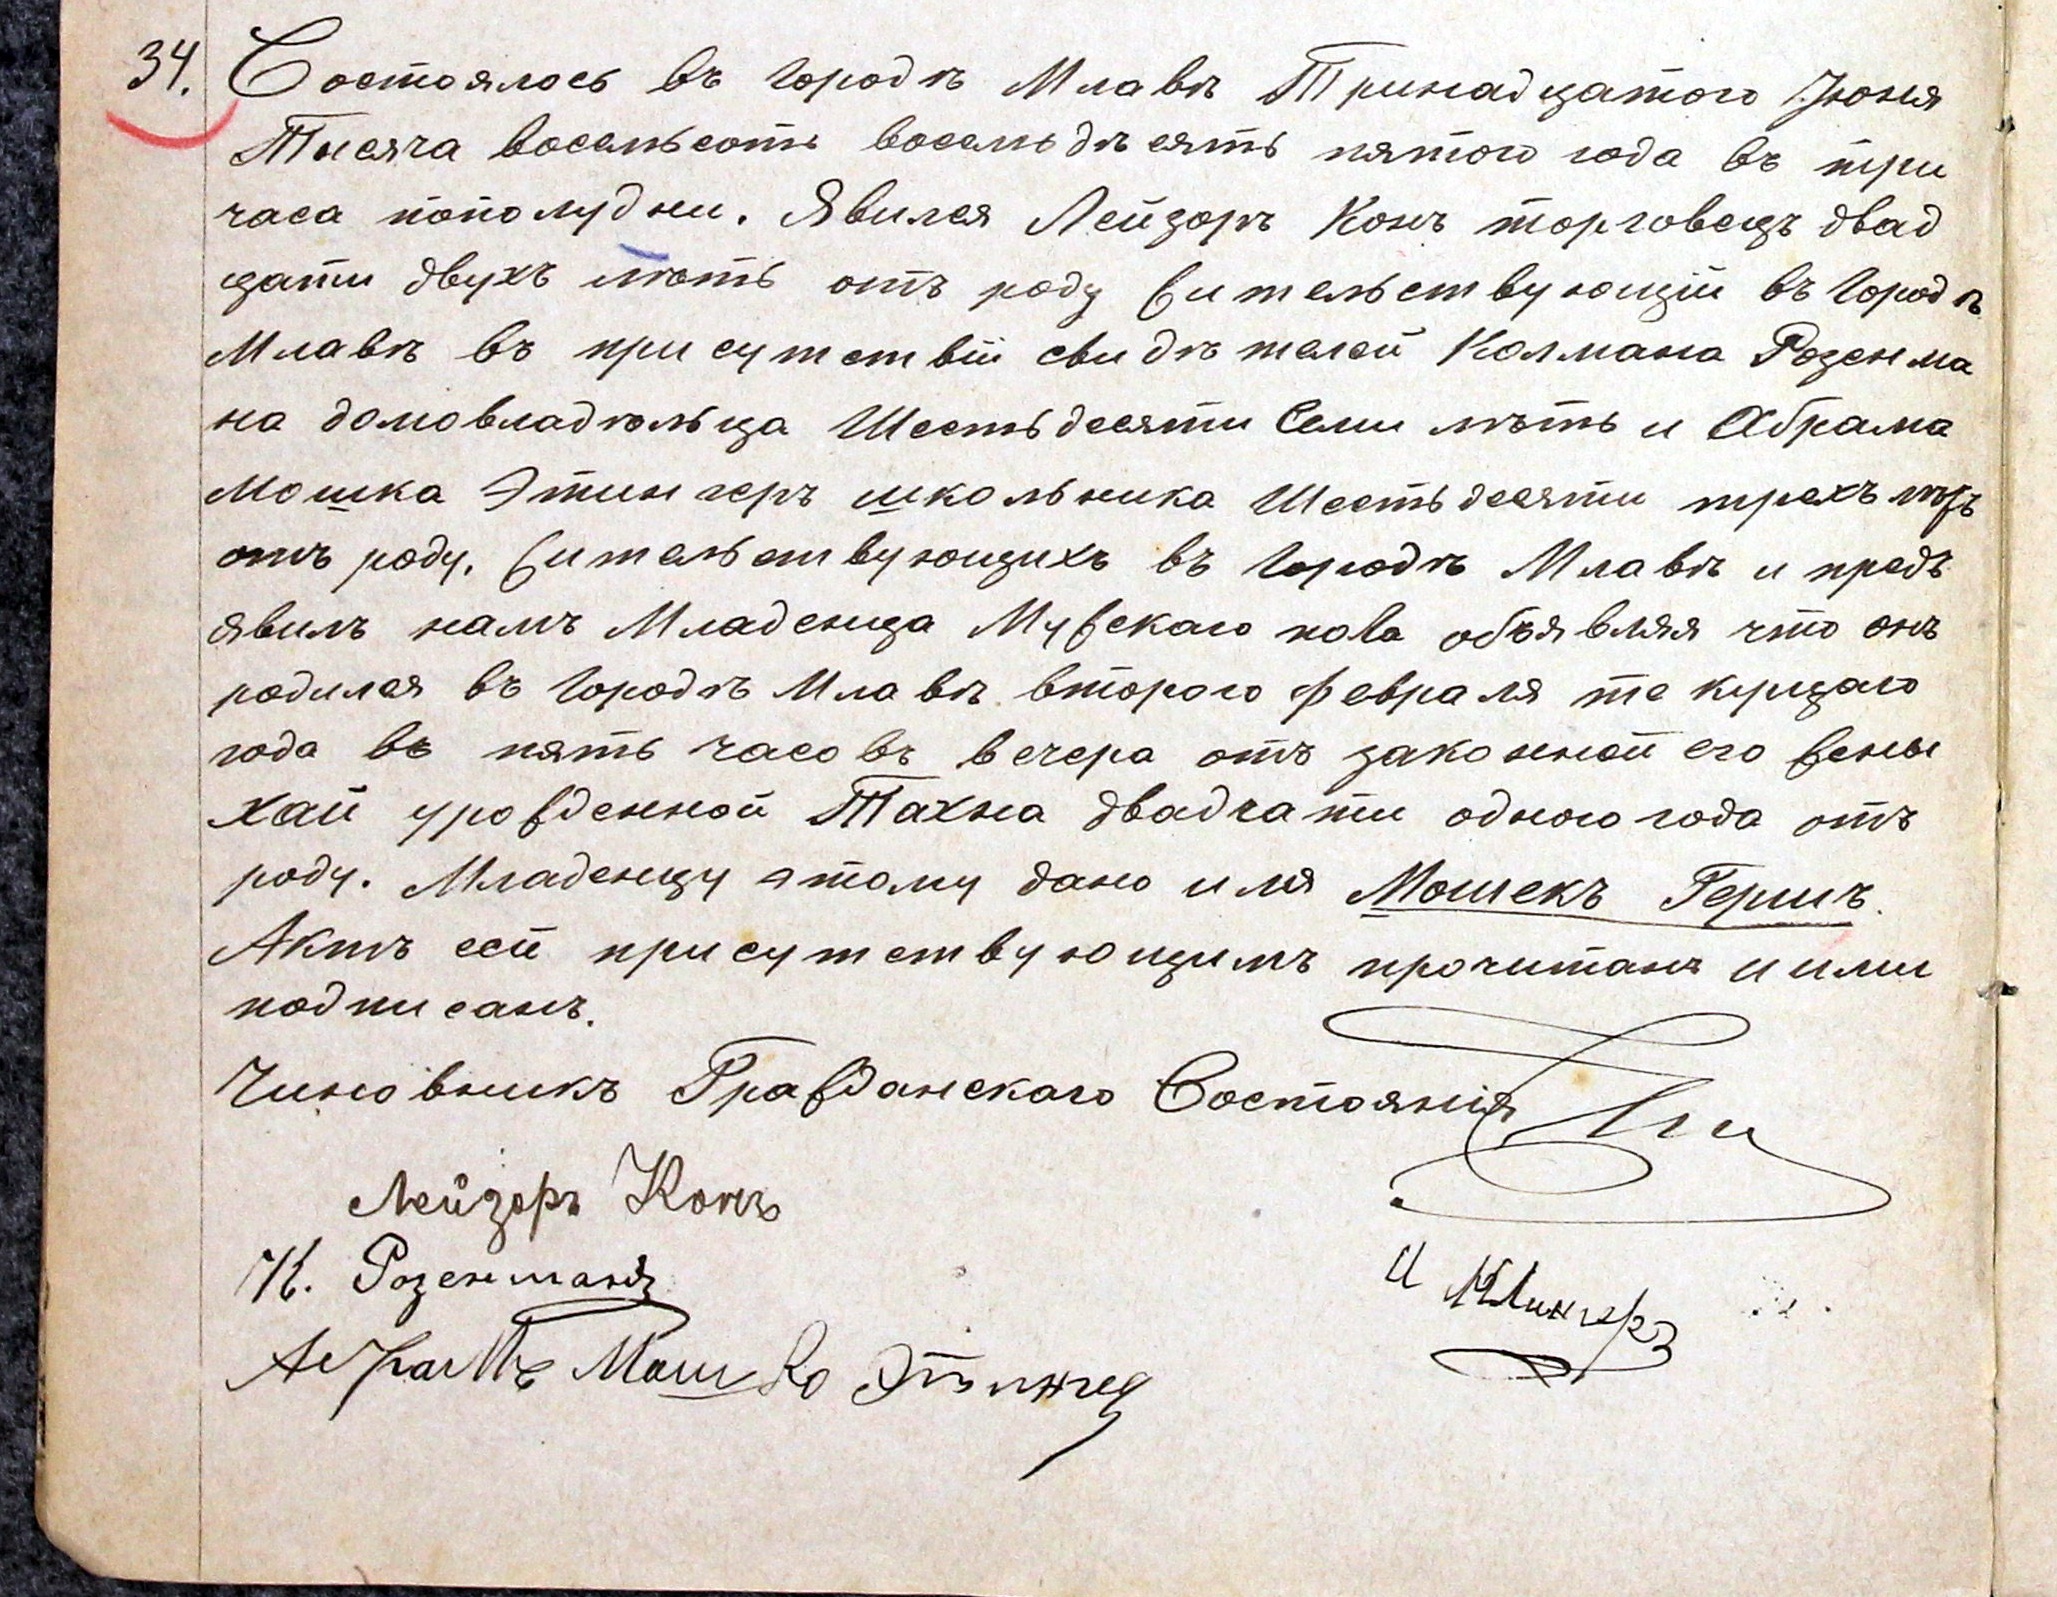 34. Состоялось въ городѣ Млавѣ Тринадцатого Іюня
Тысяча восемьсотъ восемьдѣсятъ пятого года въ три
часа пополудни. Явился Лейзоръ Конъ торговецъ двад
цати двухъ лѣтъ отъ роду жительствующій въ городѣ
Млавѣ въ присутствіи свидѣтелей Колмана Розенма
на домовладѣльца Шестьдесяти Семи лѣтъ и Абрама
Мошка Этингеръ школьника Шестьдесяти трехъ лѣтъ
отъ роду, жительствующихъ въ городѣ Млавѣ и предъ
явилъ намъ Младенца Мужскаго пола объявляя что онъ
родился въ городѣ Млавѣ второго февраля текущаго
года въ пять часовъ вечера отъ законной его жены
Хаи урожденной Тахна двадцати одного года отъ
роду. Младенцу этому дано имя Мошекъ Гершъ.
Актъ сей присутствующимъ прочитанъ и ими
подписанъ.
Чиновникъ Гражданскаго Состоянія
Лейзоръ Конъ
К. Розенманъ
Абрамъ Мошко Этингер